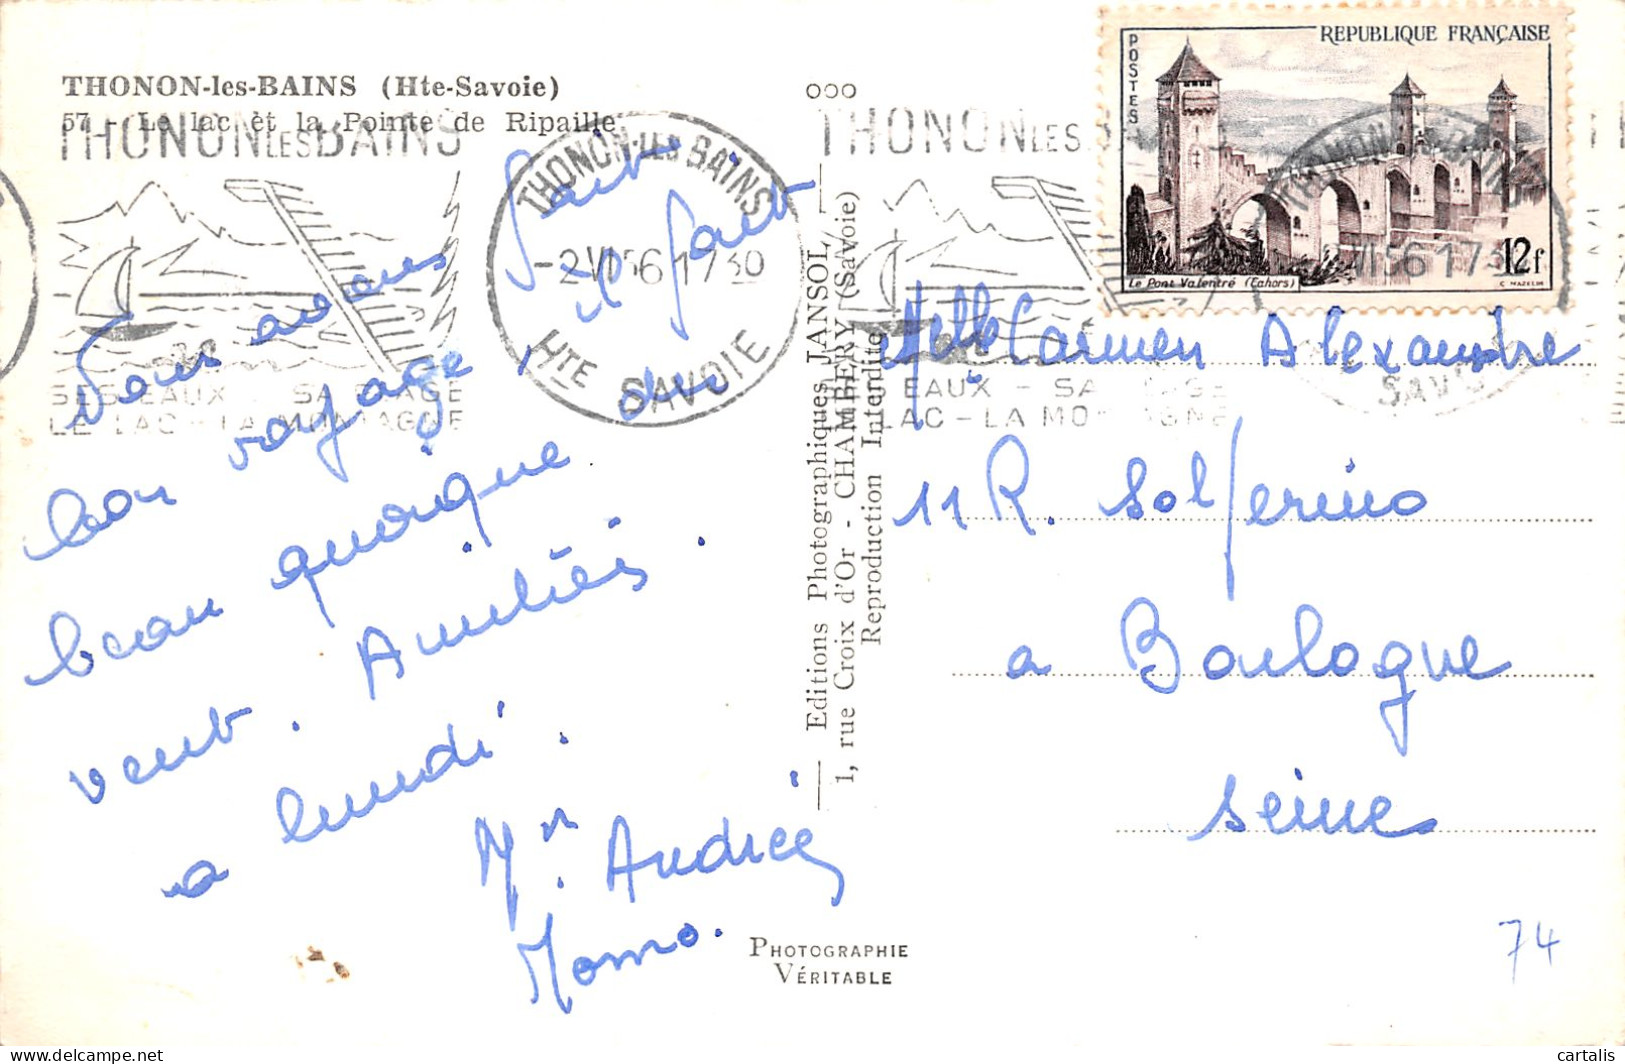 THONON-les-BAINS (Hte-Savoie)
57 - Le lac et la Pointe de Ripaille
THONON LES BAINS
SES EAUX - SA PLAGE
LE LAC - LA MONTAGNE
THONON-LES BAINS
-2 VI 56 17 30
HTE SAVOIE
Nous avons
fait
bon voyage,
il fait
beau quoique du
vent. Amitiés.
a lundi.
Mr. Andrée
Momo.
PHOTOGRAPHIE
VÉRITABLE
ooo
Editions Photographiques JANSOL
1, rue Croix d'Or - CHAMBÉRY (Savoie)
Reproduction Interdite
POSTES
REPUBLIQUE FRANÇAISE
12f
Le Pont Valentré (Cahors)
C. MAZELIN
THONON LES
EAUX - SA
LAC - LA MO
THONON
VI 56 17 3
SAVO
Melle Carmen Alexandre
11 R. Solferino
a Boulogne
Seine
74
cartalis
www.delcampe.net